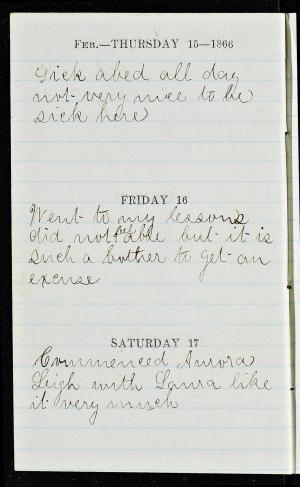 FEB.—THURSDAY 15—1866
Sick abed all day
not very nice to be
sick here
FRIDAY 16
Went to my lessons
did not feel able but it is
such a bother to get an
excuse
SATURDAY 17
Commenced Aurora
Leigh with Laura like
it very much